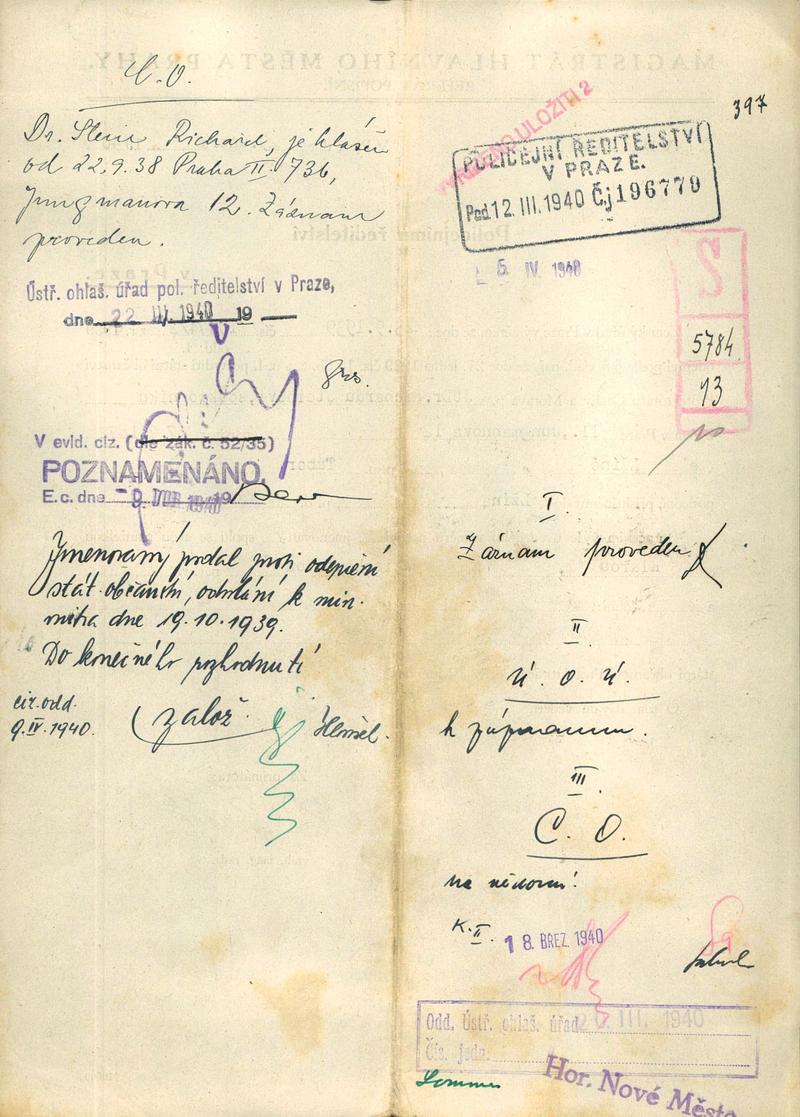 C. O.
Dr. Stein Richard, je hlášen
od 22.9.38 Praha II 736,
Jungmanova 12. Záznam
proveden.
Ústř. ohlaš. úřad pol. ředitelství v Praze,
dne 22 III. 1940 19
V evid. ciz. (dle zák. č. 52/35)
POZNAMENÁNO.
E. c. dne -9. 1940 19
Jmenovaný podal proti odepření
stát. občanství, odvolání k min.
vnitra dne 19.10.1939.
Do konečného rozhodnutí
založ.
cir. odd.
9.IV.1940.
397
ULOŽITI 2
POLICEJNÍ ŘEDITELSTVÍ
V PRAZE.
Pod. 12. III. 1940 Čj 196779
5. IV. 1940
S
5784
13
I.
Záznam proveden
II
ú. o. ú.
k záznamu.
III
C. O.
na vědomí!
K. II.
18. BŘEZ. 1940
Odd. Ústř. ohlaš. úřad 20. III. 1940
Čís. jedn.
Hor. Nové Město